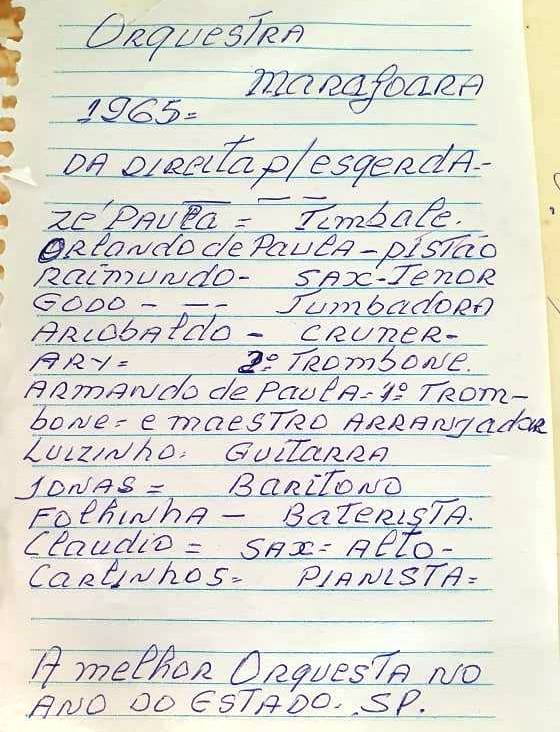 ORQUESTRA
MARAJOARA
1965=
DA DIREITA P/ ESQERDA.-
ZÉ PAULA = — — TIMBALE.
ORLANDO de PAULA - PISTÃO
RAIMUNDO - SAX-TENOR
GODO - — - TUMBADORA
ARIOBALDO - CRUNER-
ARY= 2º TROMBONE.
ARMANDO de PAULA - 1º TROM-
BONE = e MAESTRO ARRANJADOR
LUIZINHO. GUITARRA
JONAS = BARITONO
FOLHINHA - BATERISTA.
CLAUDIO = SAX = ALTO -
CARLINHOS = PIANISTA =
A MELHOR ORQUESTA NO
ANO DO ESTADO. SP.